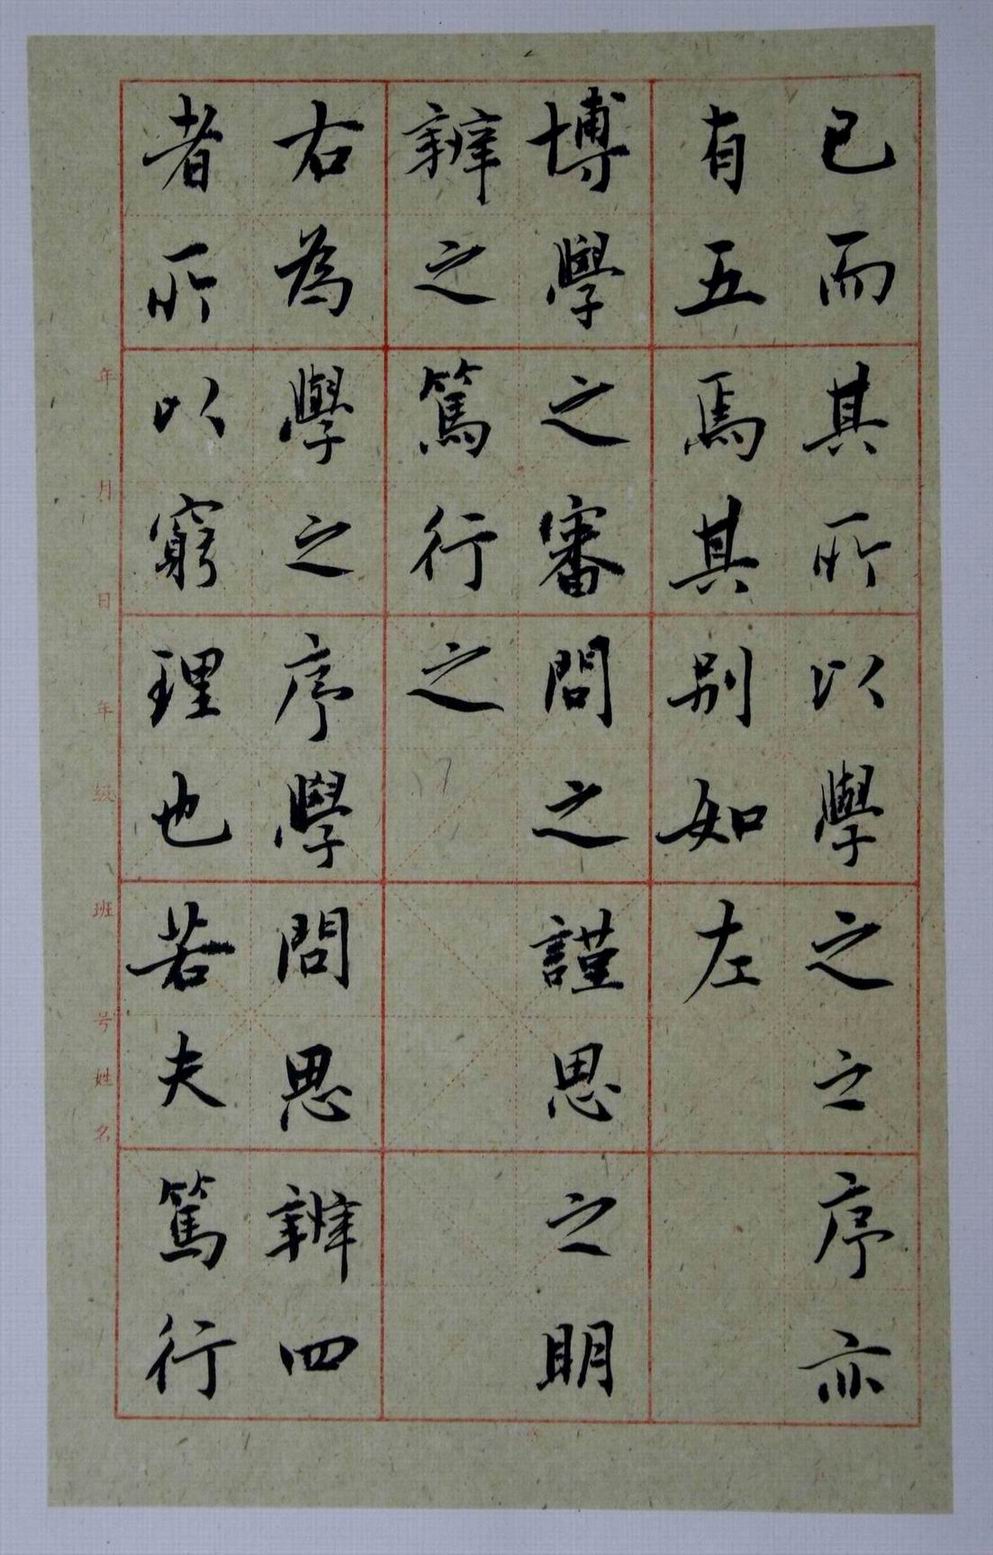 已而其所以學之之序亦
有五焉其别如左
博學之審問之謹思之明
辨之篤行之
右為學之序學問思辨四
者所以窮理也若夫篤行
年 月 日 年级 班 号 姓名